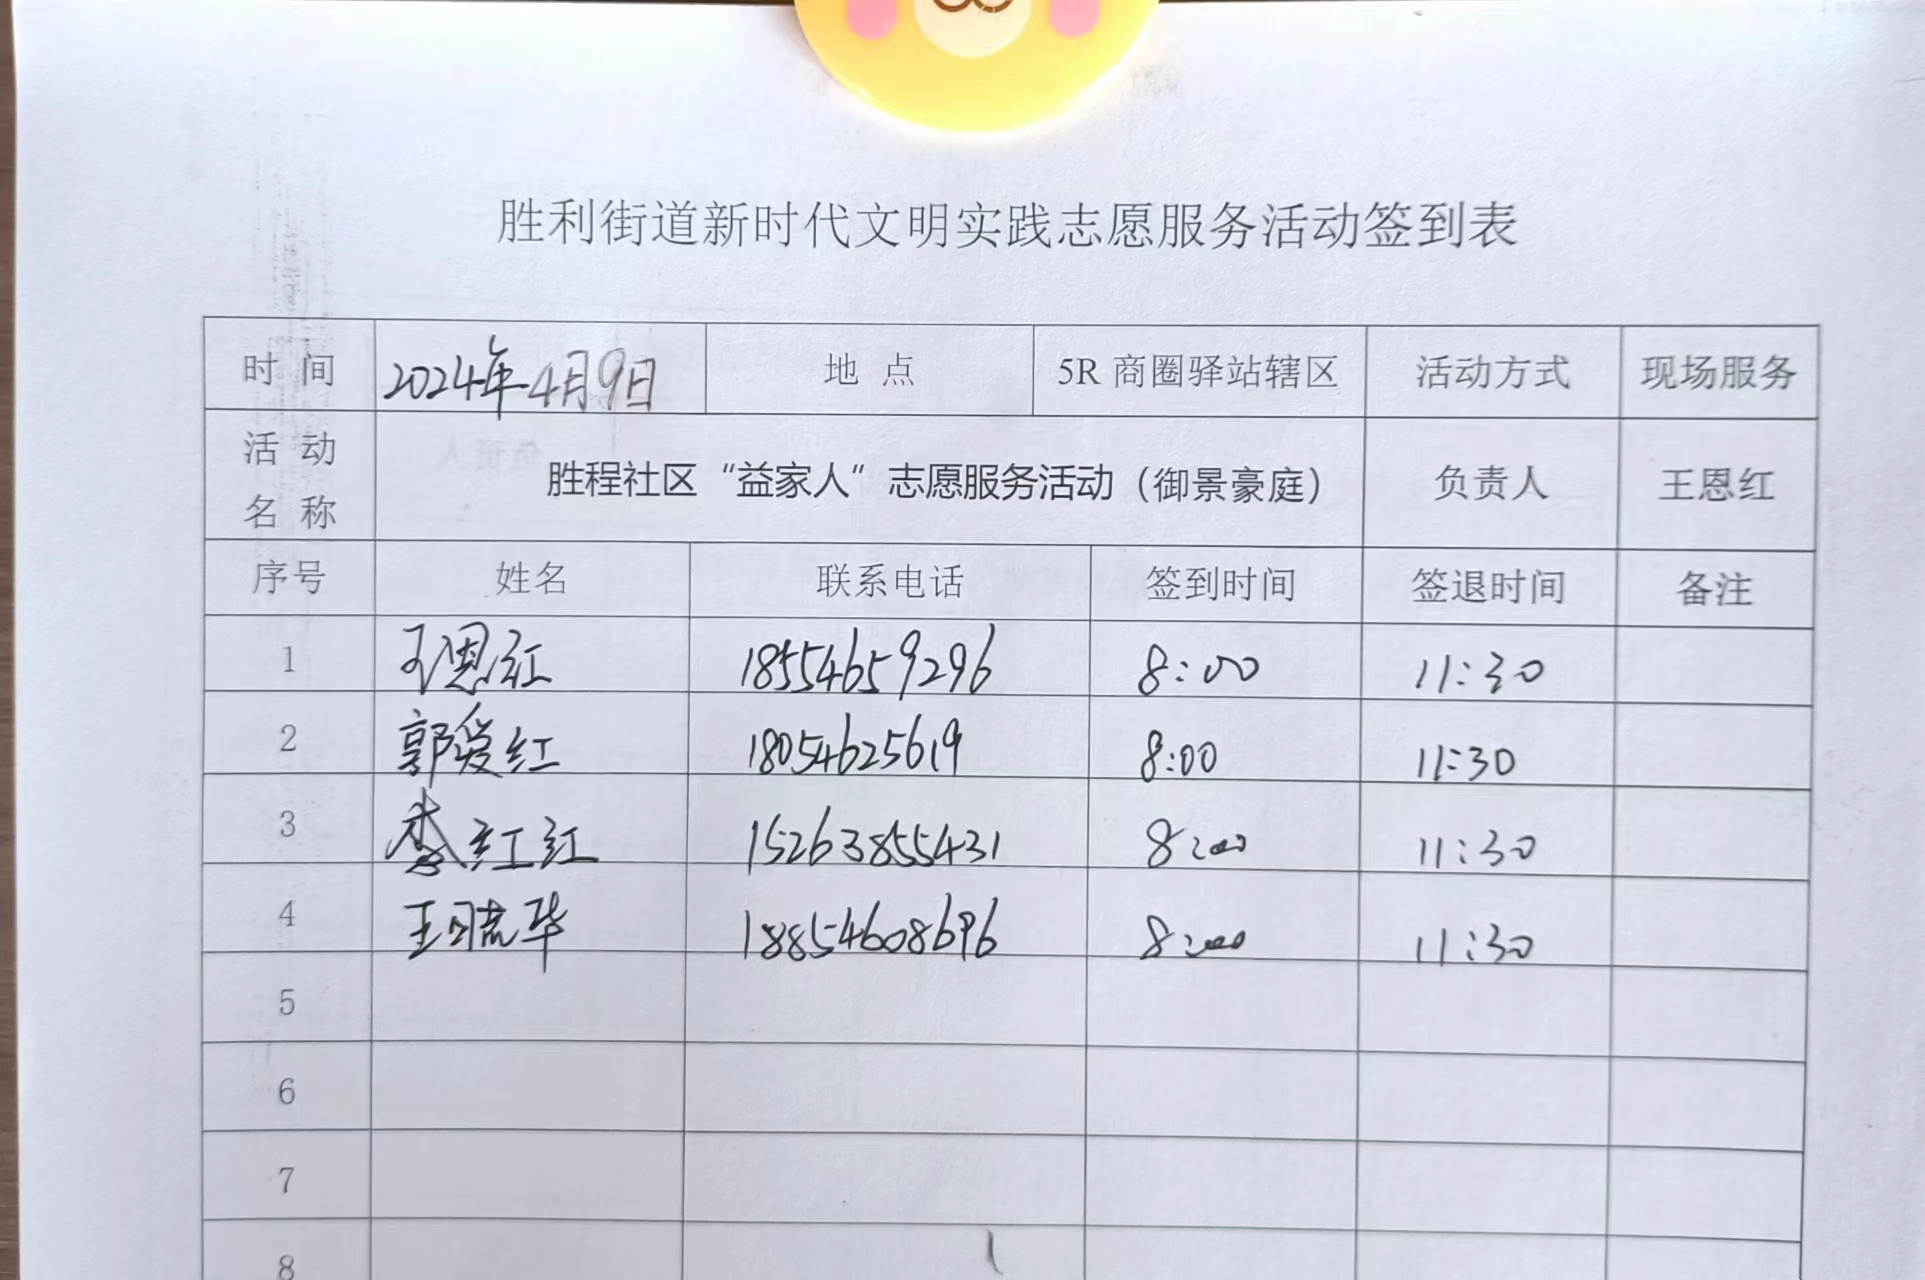 胜利街道新时代文明实践志愿服务活动签到表
时 间 2024年4月9日 地 点 5R 商圈驿站辖区 活动方式 现场服务
活 动
名 称 胜程社区“益家人”志愿服务活动（御景豪庭） 负责人 王恩红
序号 姓名 联系电话 签到时间 签退时间 备注
1 王恩红 18554659296 8:00 11:30
2 郭爱红 18054625619 8:00 11:30
3 李红红 15263855431 8:00 11:30
4 王晓华 18854608696 8:00 11:30
5
6
7
8